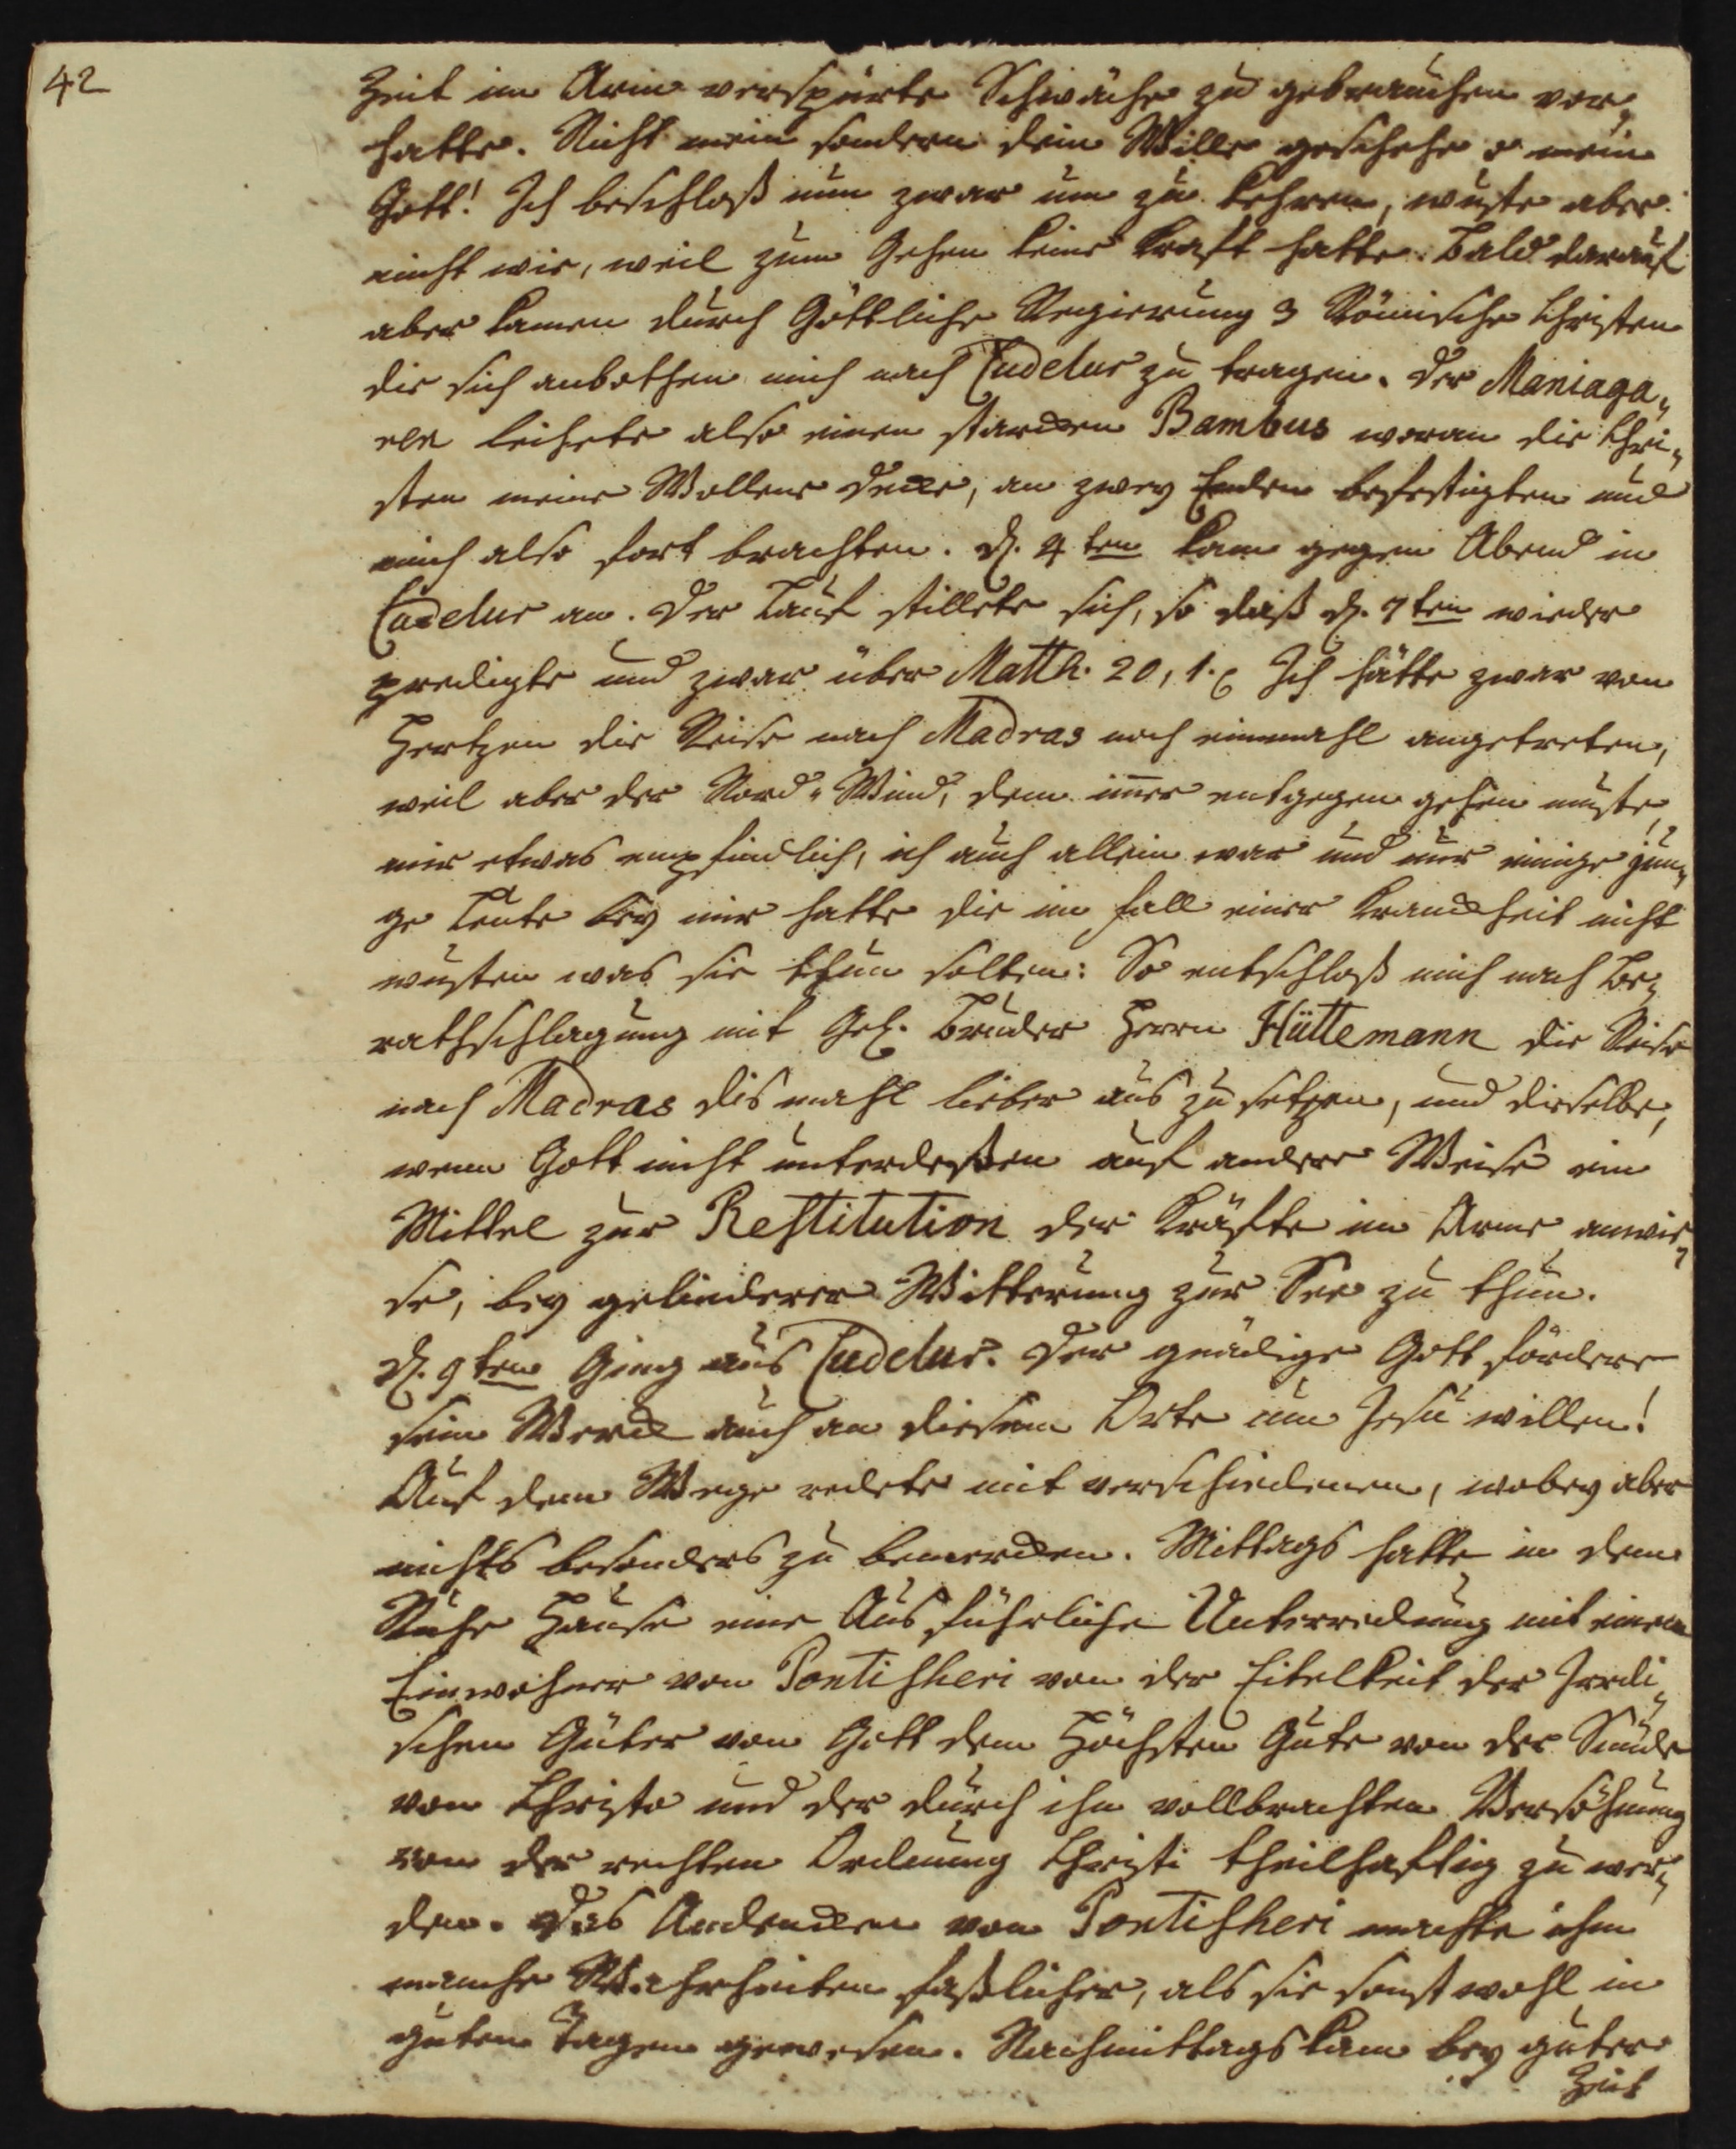 42
Zeit im Arm verspürte Schwäche zu gebrauchen vor,
hatte. Nicht mein sondern dein Wille geschehe o mein
Gott! Ich beschloß nun zwar um zu kehren, wuste aber
nicht wie, weil zum Gehen keine Kraft hatte. Bald darauf
aber kamen durch Göttliche Regierung 3 Römische Christen
die sich anbothen mich nach Cudelur zu tragen. Der Maniaga„
ren leihete also einen starcken Bambus woran die Chri„
sten meine Wollene Decke, an zwey Enden befestigten und
mich also fort brachten. d. 4ten kam gegen Abend in
Cudelur an. Der Lauf stillete sich, so daß d. 7ten wieder
predigte und zwar über Matth. 20, 1. Ich hätte zwar von
Hertzen die Reise nach Madras noch einmahl angetreten,
weil aber der Nord-Wind, dem im̄er entgegen gehen muste,
mir etwas empfindlich, ich auch allein war und nur einige jun„
ge Leute bey mir hatte die im fall einer Kranckheit nicht
wusten was sie thun solten: So entschloß mich nach Be„
rathschlagung mit Gel. Bruder Herrn Hüttemann die Reise
nach Madras dis mahl lieber aus zu setzen, und dieselbe,
wenn Gott nicht unterdeßen auf andere Weise ein
Mittel zur Restitution der Kräfte im Arme anwie„
se, bey gelinderer Witterung zur See zu thun.
d. 9ten Ging aus Cudelur. Der gnädige Gott fördere
sein Werck auch an diesem Orte um Jesu willen!
Auf dem Wege redete mit verschiedenen, wobey aber
nichts besonders zu bemercken. Mittags hatte in dem
Ruhe Hause eine Ausführliche Unterredung mit einem
Einwohner von Pontischeri von der Eitelkeit der Irrdi„
schen Güter von Gott dem Höchsten Gute von der Sünde
von Christo und der durch ihn vollbrachten Versöhnung
von der rechten Ordnung Christi theilhafftig zu wer„
den. Das Andencken von Pontischeri machte ihm
manche Wahrheiten faßlicher, als sie sonst wohl in
guten Tagen gewesen. Nachmittags kam bey guter
Zeit